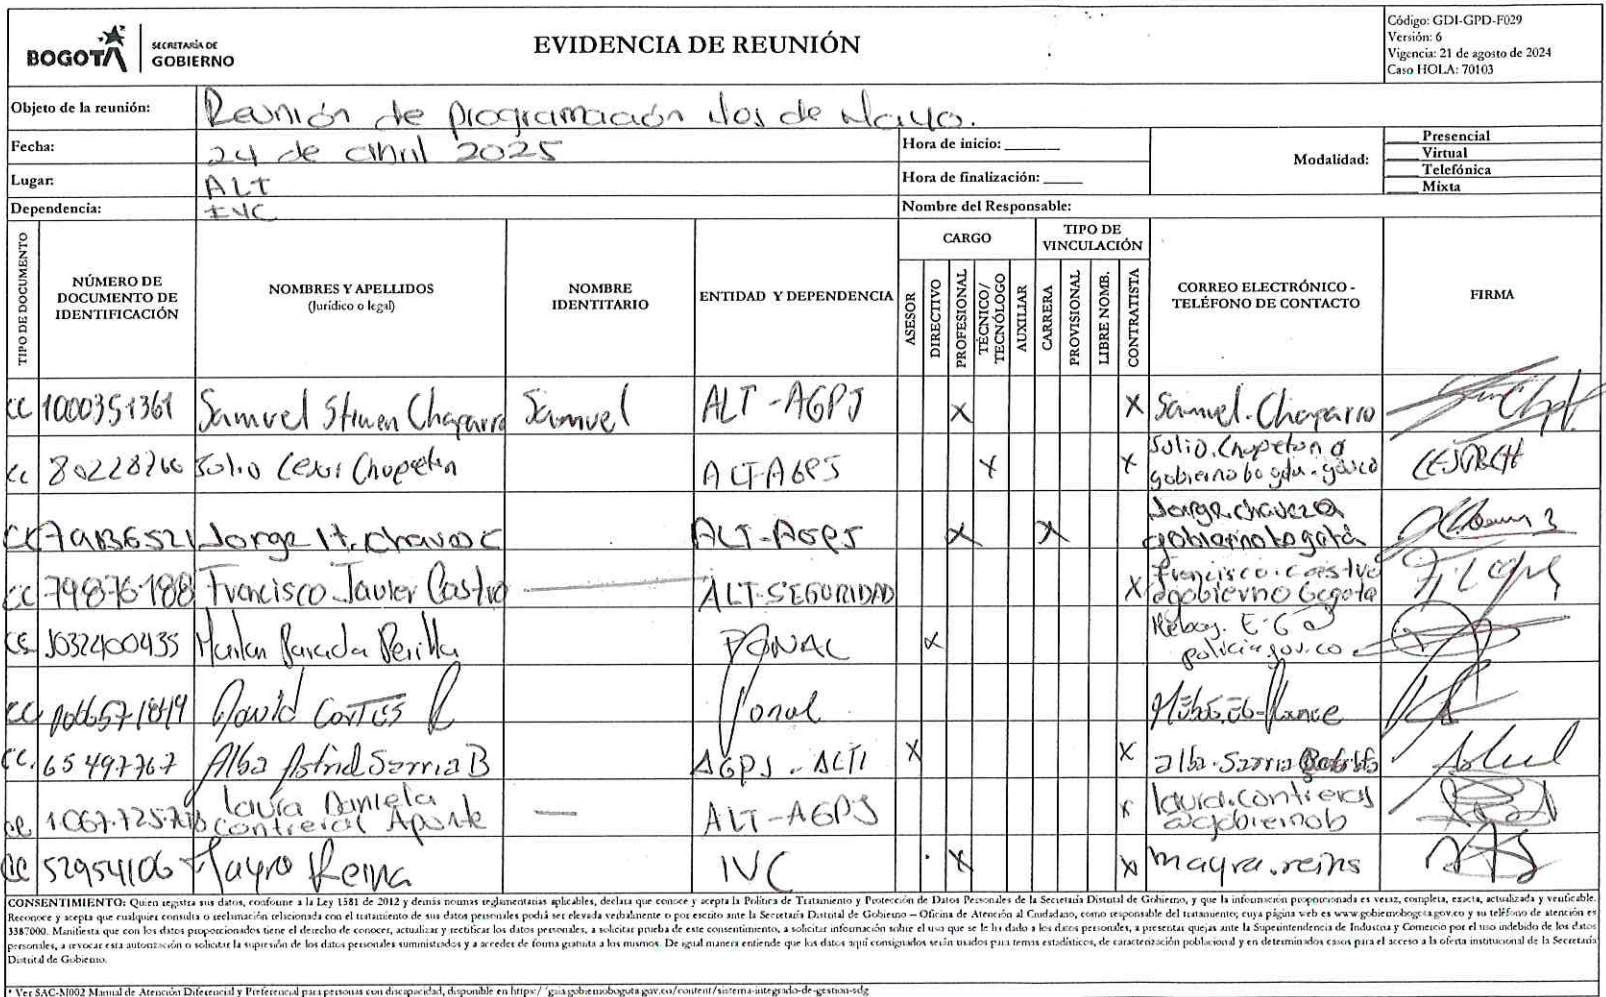 BOGOTÁ
SECRETARÍA DE
GOBIERNO
EVIDENCIA DE REUNIÓN
Código: GDI-GPD-F029
Versión: 6
Vigencia: 21 de agosto de 2024
Caso HOLA: 70103
Objeto de la reunión: Reunión de programación de Mayo.
Fecha: 24 de abril 2025
Hora de inicio: ______
Modalidad:
___ Presencial
___ Virtual
___ Telefónica
___ Mixta
Lugar: ALT
Hora de finalización: _____
Dependencia: IVC
Nombre del Responsable:
TIPO DE DOCUMENTO
NÚMERO DE DOCUMENTO DE IDENTIFICACIÓN
NOMBRES Y APELLIDOS (Jurídico o legal)
NOMBRE IDENTITARIO
ENTIDAD Y DEPENDENCIA
CARGO
ASESOR
DIRECTIVO
PROFESIONAL
TÉCNICO/ TECNÓLOGO
AUXILIAR
TIPO DE VINCULACIÓN
CARRERA
PROVISIONAL
LIBRE NOMB.
CONTRATISTA
CORREO ELECTRÓNICO - TELÉFONO DE CONTACTO
FIRMA
CC 1000351361 Samuel Stiwen Chaparro Samuel ALT-AGPJ X X Samuel.Chaparro
CC 80228766 Julio Cesar Chapeton ALT-AGPJ X X Julio.Chapeton@ gobiernobogota.gov.co
CC Jorge H. Chavez C ALT-AGPJ X X Jorge.chavez@ gobiernobogotá
CC 79876188 Francisco Javier Castro ALT-SEGURIDAD X Francisco.castro @gobierno bogota
CC 1032400435 Parada Perilla PONAL X E-6@ policia.gov.co
CC David Cortés R Ponal
CC. 65497767 Alba Astrid Sarria B AGPJ - ALTI X X alba.Sarria
CC Laura Daniela Contreras Aponte — ALT-AGPJ X laura.contreras @gobiernob
CC 52954106 Mayra Reina IVC X X mayra.reina
CONSENTIMIENTO: Quien registra sus datos, conforme a la Ley 1581 de 2012 y demás normas reglamentarias aplicables, declara que conoce y acepta la Política de Tratamiento y Protección de Datos Personales de la Secretaría Distrital de Gobierno, y que la información proporcionada es veraz, completa, exacta, actualizada y verificable.
Reconoce y acepta que cualquier consulta o reclamación relacionada con el tratamiento de sus datos personales podrá ser elevada verbalmente o por escrito ante la Secretaría Distrital de Gobierno – Oficina de Atención al Ciudadano, como responsable del tratamiento, cuya página web es www.gobiernobogota.gov.co y su teléfono de atención es
3387000. Manifiesta que con los datos proporcionados tiene el derecho de conocer, actualizar y rectificar los datos personales, a solicitar prueba de este consentimiento, a solicitar información sobre el uso que se le ha dado a los datos personales, a presentar quejas ante la Superintendencia de Industria y Comercio por el uso indebido de los datos
personales, a revocar esta autorización o solicitar la supresión de los datos personales suministrados y a acceder de forma gratuita a los mismos. De igual manera entiende que los datos aquí consignados serán usados para temas estadísticos, de caracterización poblacional y en determinados casos para el acceso a la oferta institucional de la Secretaría
Distrital de Gobierno.
* Ver SAC-M002 Manual de Atención Diferencial y Preferencial para personas con discapacidad, disponible en https://gaia.gobiernobogota.gov.co/content/sistema-integrado-de-gestion-sdg